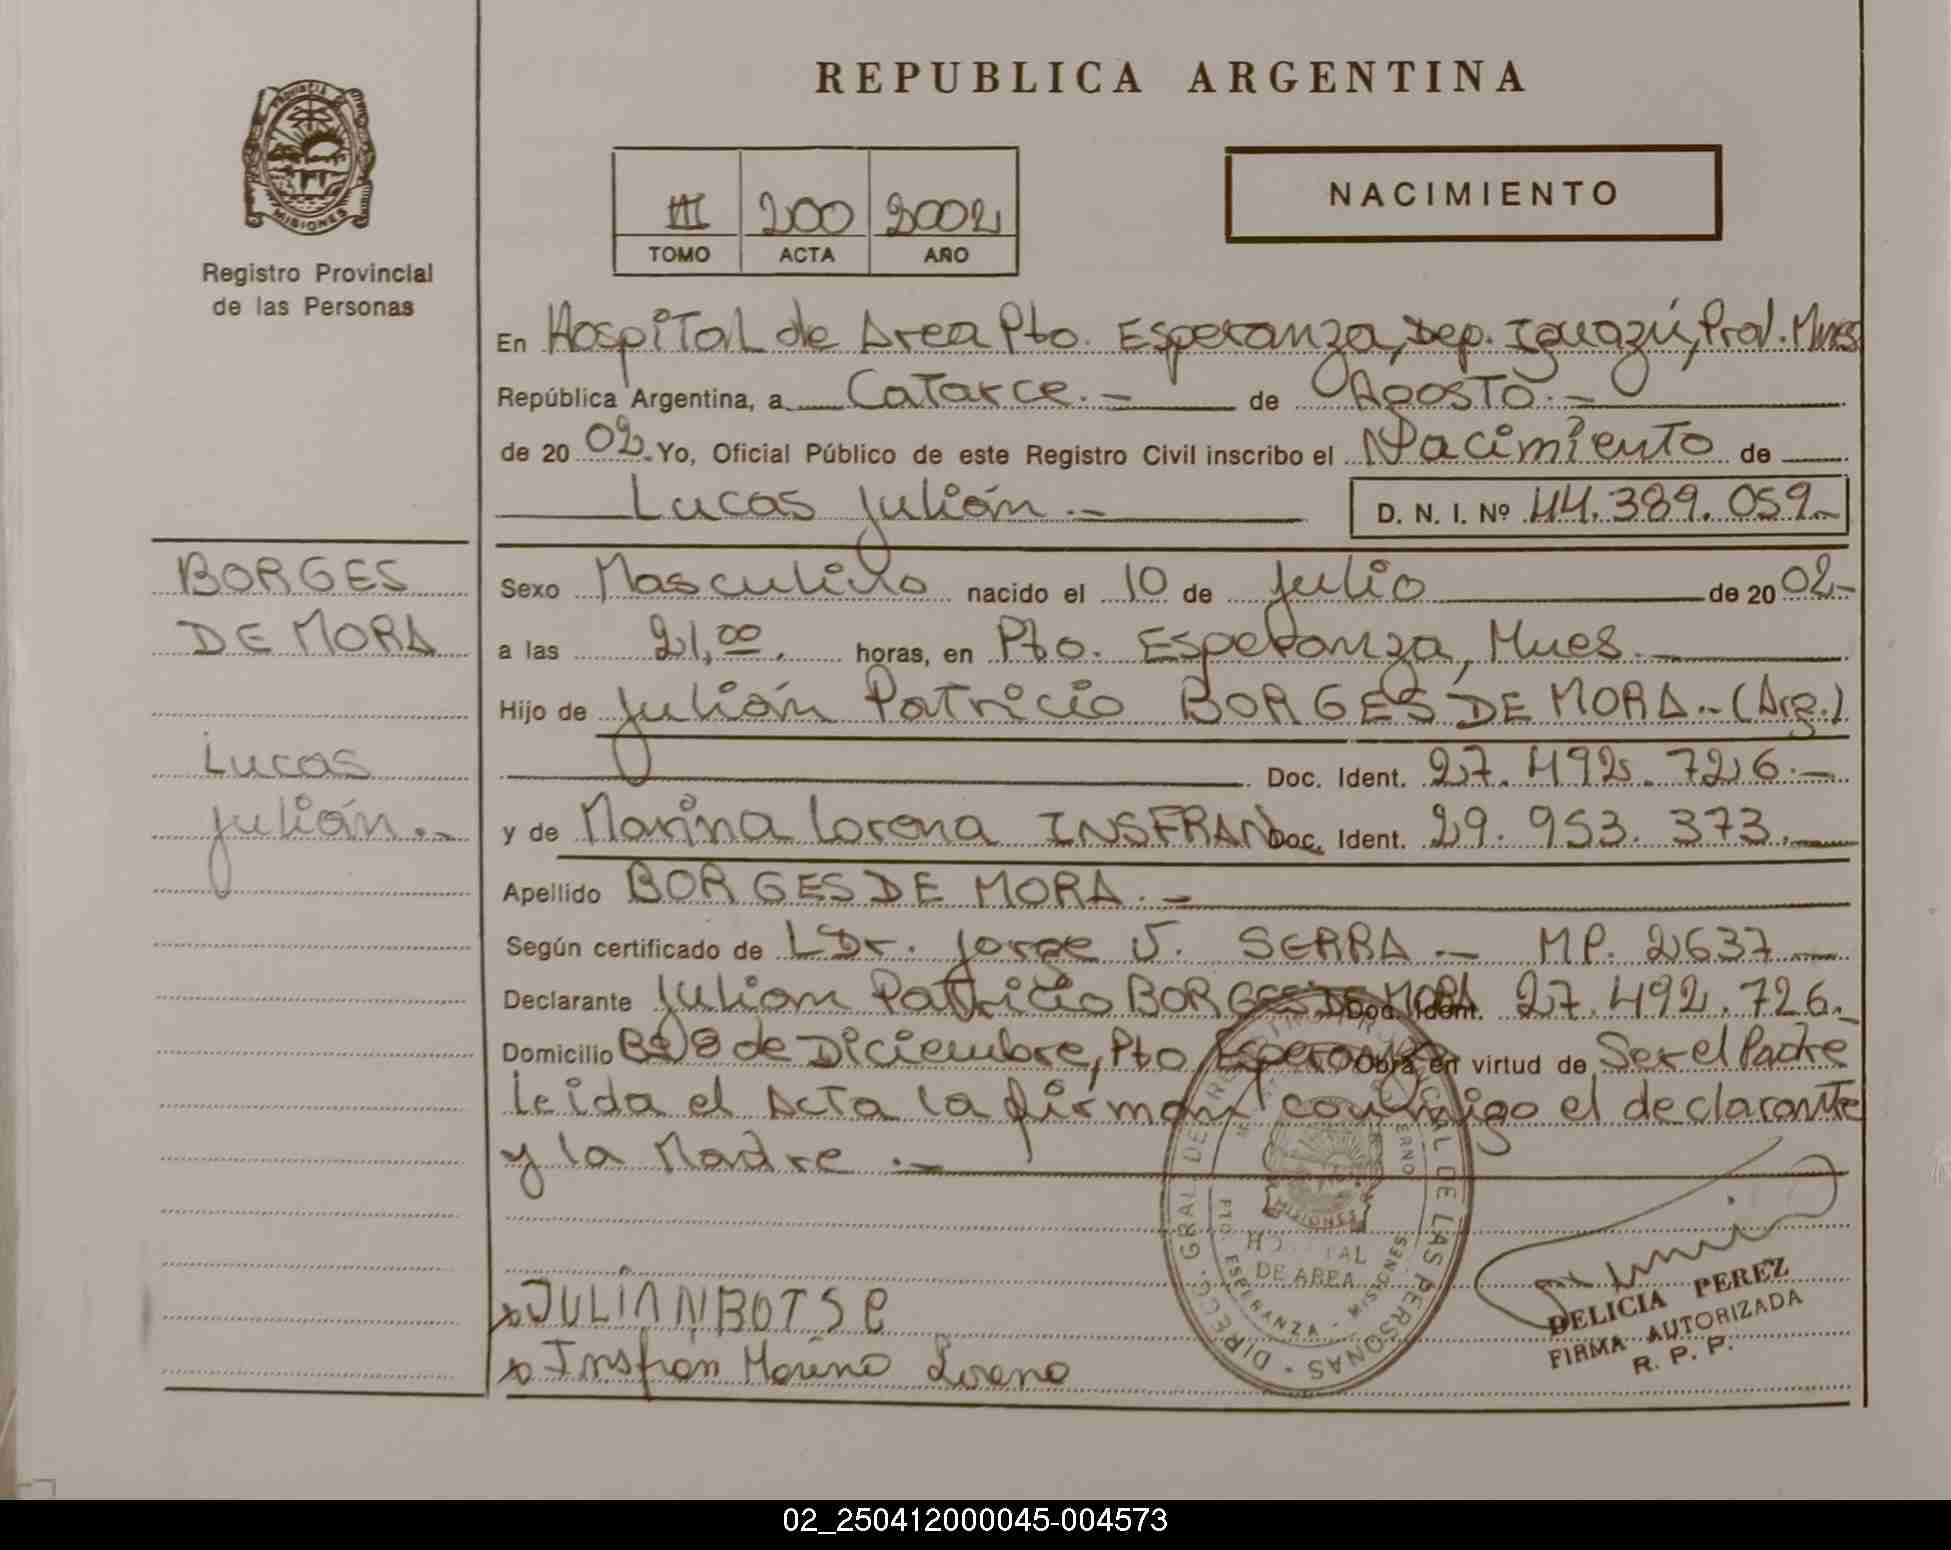 REPUBLICA ARGENTINA
PROVINCIA DE
MISIONES
Registro Provincial
de las Personas
III 200 2002
TOMO ACTA AÑO
NACIMIENTO
En Hospital de Area Pto. Esperanza, Dep. Iguazú, Prov. Mnes
República Argentina, a Catorce.- de Agosto.-
de 2002. Yo, Oficial Público de este Registro Civil inscribo el Nacimiento de
Lucas Julián.- D. N. I. Nº 44.389.059.-
BORGES
DE MORA
Lucas
Julián.-
Sexo Masculino nacido el 10 de Julio de 2002-
a las 21,00. horas, en Pto. Esperanza, Mnes.-
Hijo de Julián Patricio BORGES DE MORA.-(Arg.)
Doc. Ident. 27.492.726.-
y de Marina Lorena INSFRAN Doc. Ident. 29.953.373.-
Apellido BORGES DE MORA.-
Según certificado de Dr. Jorge J. SERRA.- MP. 2637-
Declarante Julian Patricio BORGES DE MORA Doc. Ident. 27.492.726.-
Domicilio Bº 8 de Diciembre, Pto Esperanza Obra en virtud de Ser el Padre
Leida el Acta la firman conmigo el declarante
y la Madre.-
DIRECC. GRAL. DE DE LAS PERSONAS
HOSPITAL
DE AREA
PTO. ESPERANZA - MISIONES
MISIONES
x JULIAN BOTSE
x Insfrán Marina Lorena
DELICIA PEREZ
FIRMA AUTORIZADA
R. P. P.
02_250412000045-004573